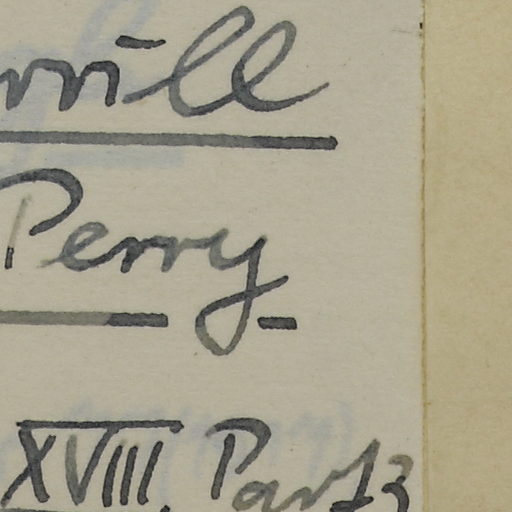 rrill
Perry
XVIII. Part 3